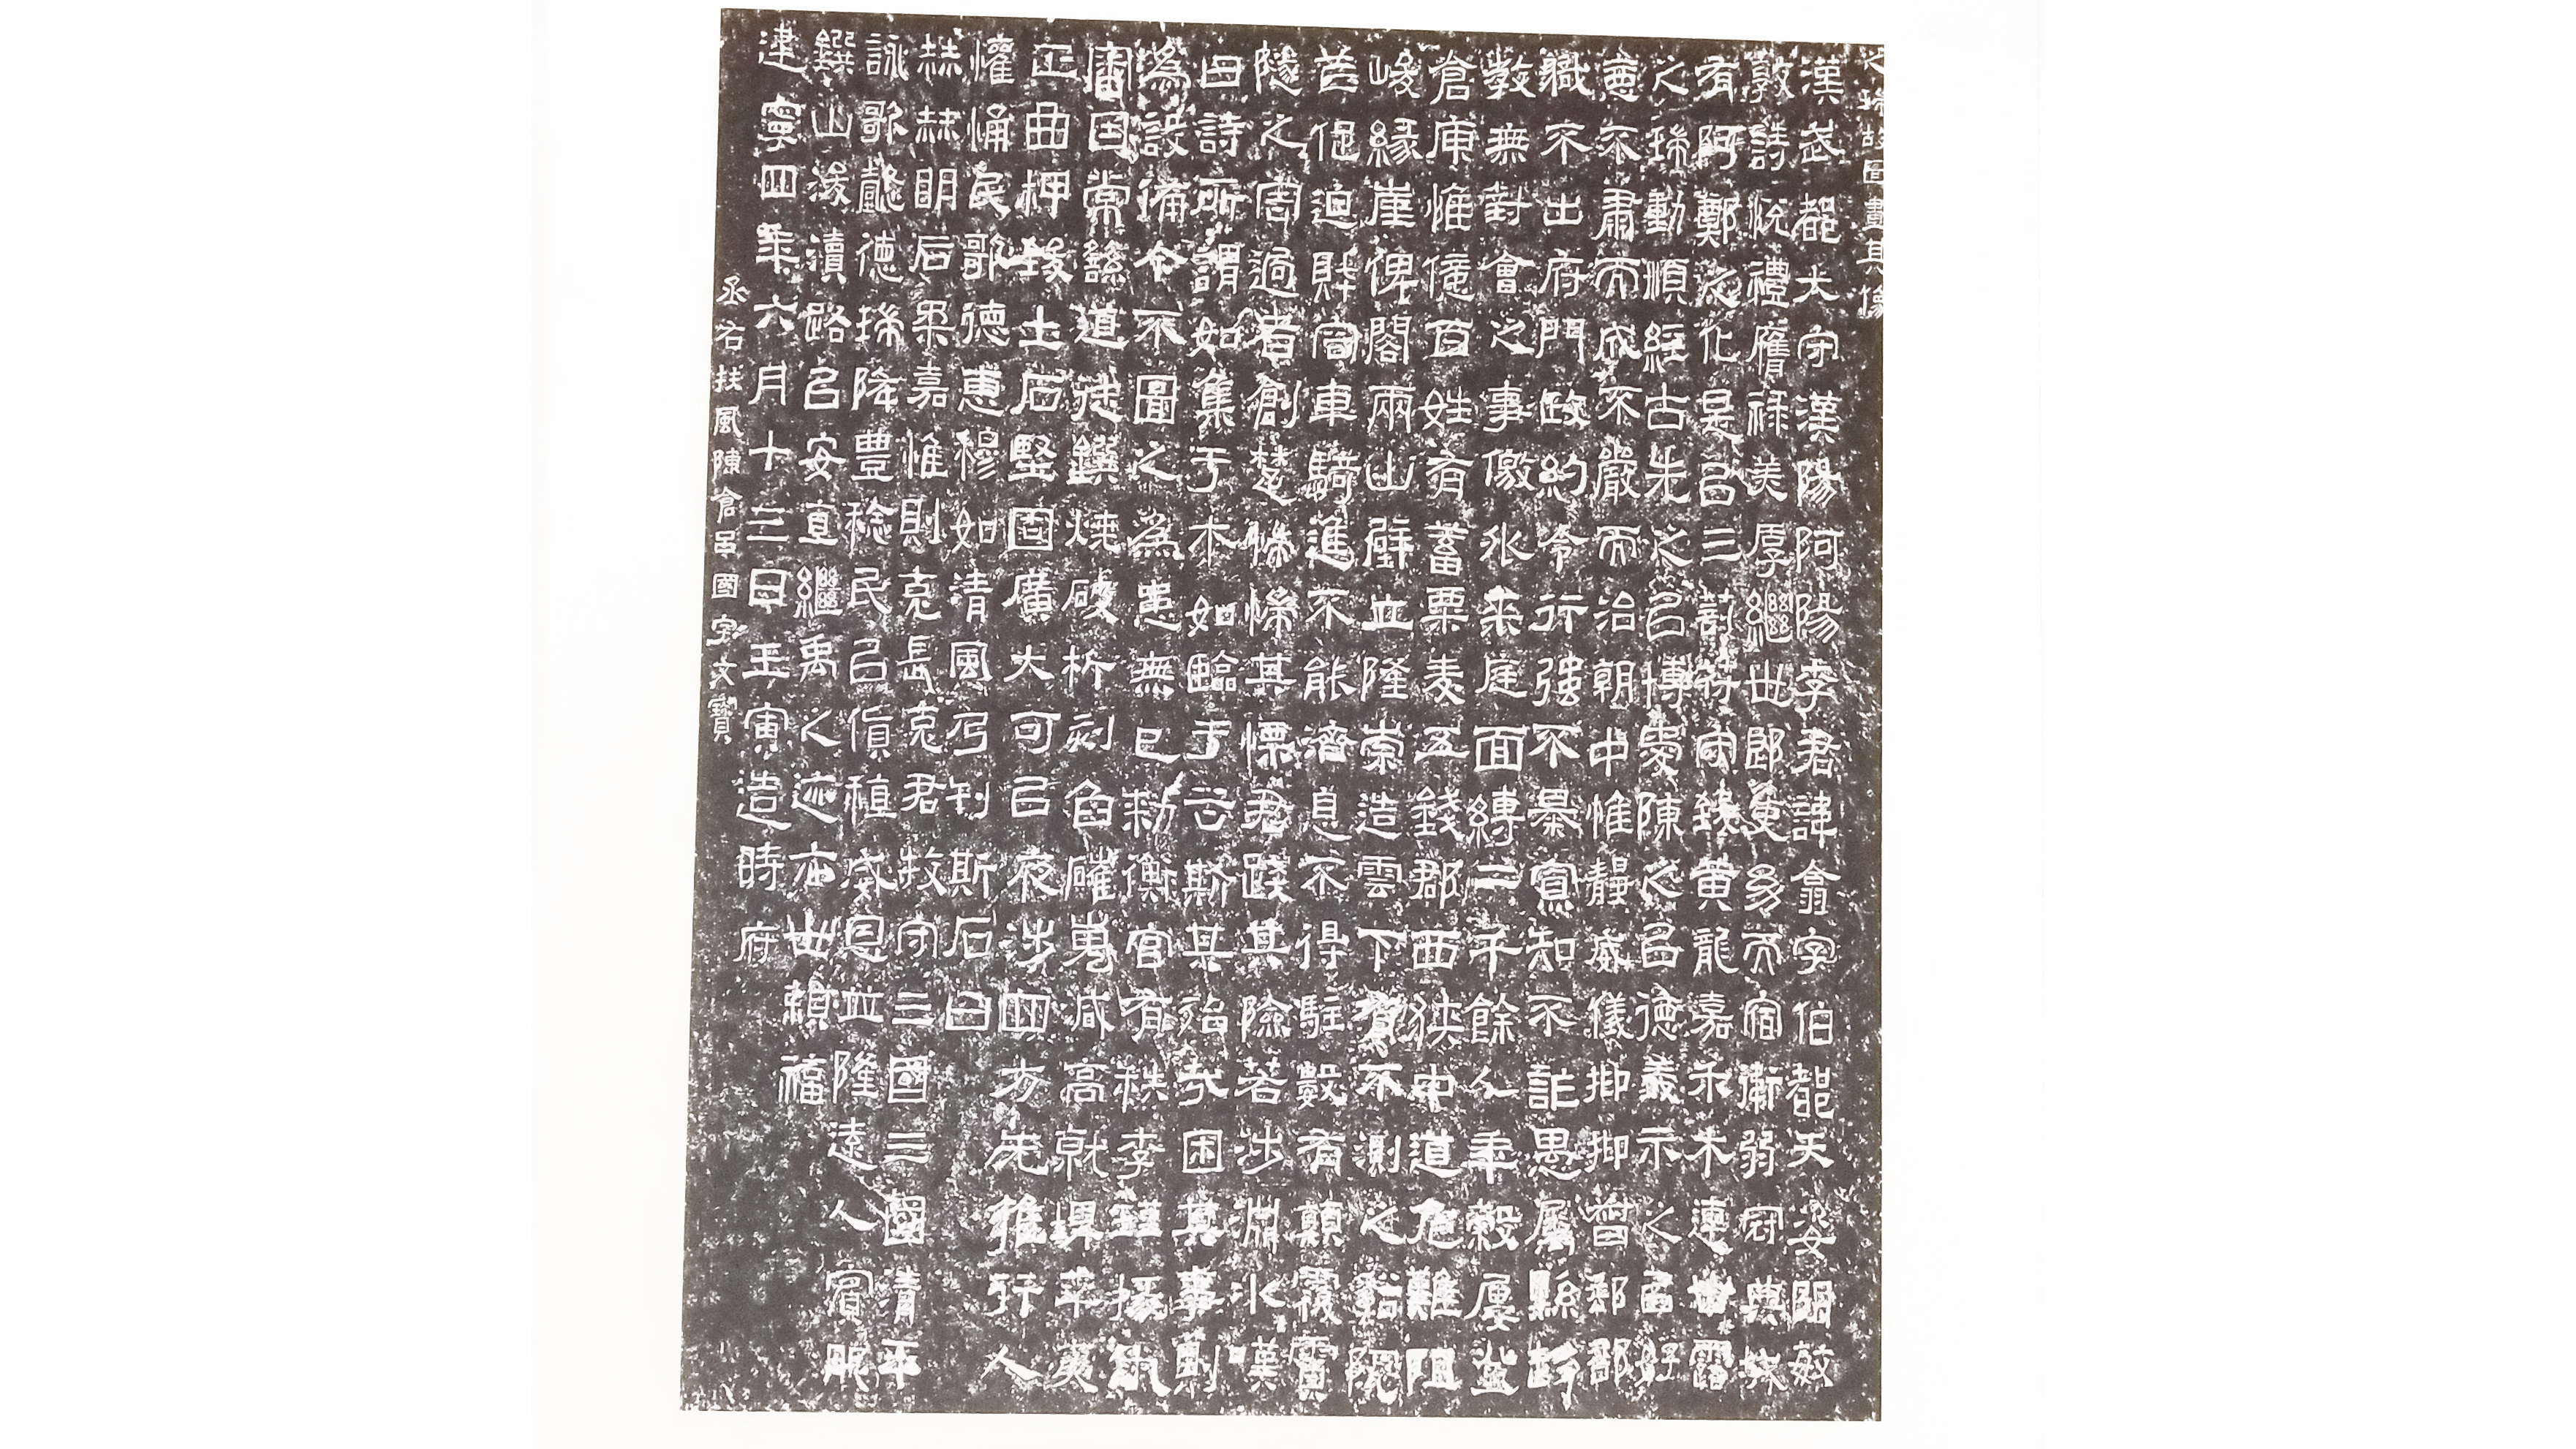 之瑞故圖畫其像
漢武都太守漢陽阿陽李君諱翕字伯都天姿明敏
敦詩悅禮膺祿美厚繼世郎吏幼而宿衛弱冠典城
有阿鄭之化是以三剖符守致黃龍嘉禾木連甘露
之瑞動順經古先之以博愛陳之以德義示之以好
惡不肅而成不嚴而治朝中惟靜威儀抑抑督郵部
職不出府門政約令行強不暴寡知不詐愚屬縣趍
教無對會之事儌外來庭面縛二千餘人年穀屢登
倉庾惟億百姓有蓄粟麥五錢郡西狹中道危難阻
峻緣崖俾閣兩山壁立隆崇造雲下有不測之谿阨
芒促迫財容車騎進不能濟息不得駐數有顛覆霣
隧之害過者創楚惴惴其慄君踐其險若涉淵冰嘆
曰詩所謂如集于木如臨于谷斯其殆哉困其事則
為設備今不圖之為患無已勑衡官有秩李瑾掾仇
審因常繇道徒鐉燒破析刻臽磪嵬減高就埤平夷
正曲柙致土石堅固廣大可以夜涉四方无雍行人
懽悀民歌德惠穆如清風乃刊斯石曰
赫赫明后柔嘉惟則克長克君牧守三國三國清平
詠歌懿德瑞降豐稔民以貨稙威恩並隆遠人賓服
鐉山浚瀆路以安直繼禹之迹亦世賴福
建寧四年六月十三日壬寅造時府
丞右扶風陳倉呂國字文寶